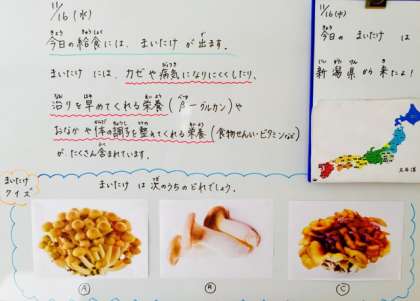 11/16 (水)
今日の給食には、まいたけが出ます。
まいたけには、カゼや病気になりにくくしたり、
治りを早めてくれる栄養(β-グルカン)や
おなかや体の調子を整えてくれる栄養(食物せんい・ビタミンなど)
が、たくさん含まれています。
11/16 (水)
今日の まいたけ は
新潟県から来たよ!
まいたけ
クイズ
まいたけ は 次のうちのどれでしょう。
Ⓐ Ⓑ Ⓒ